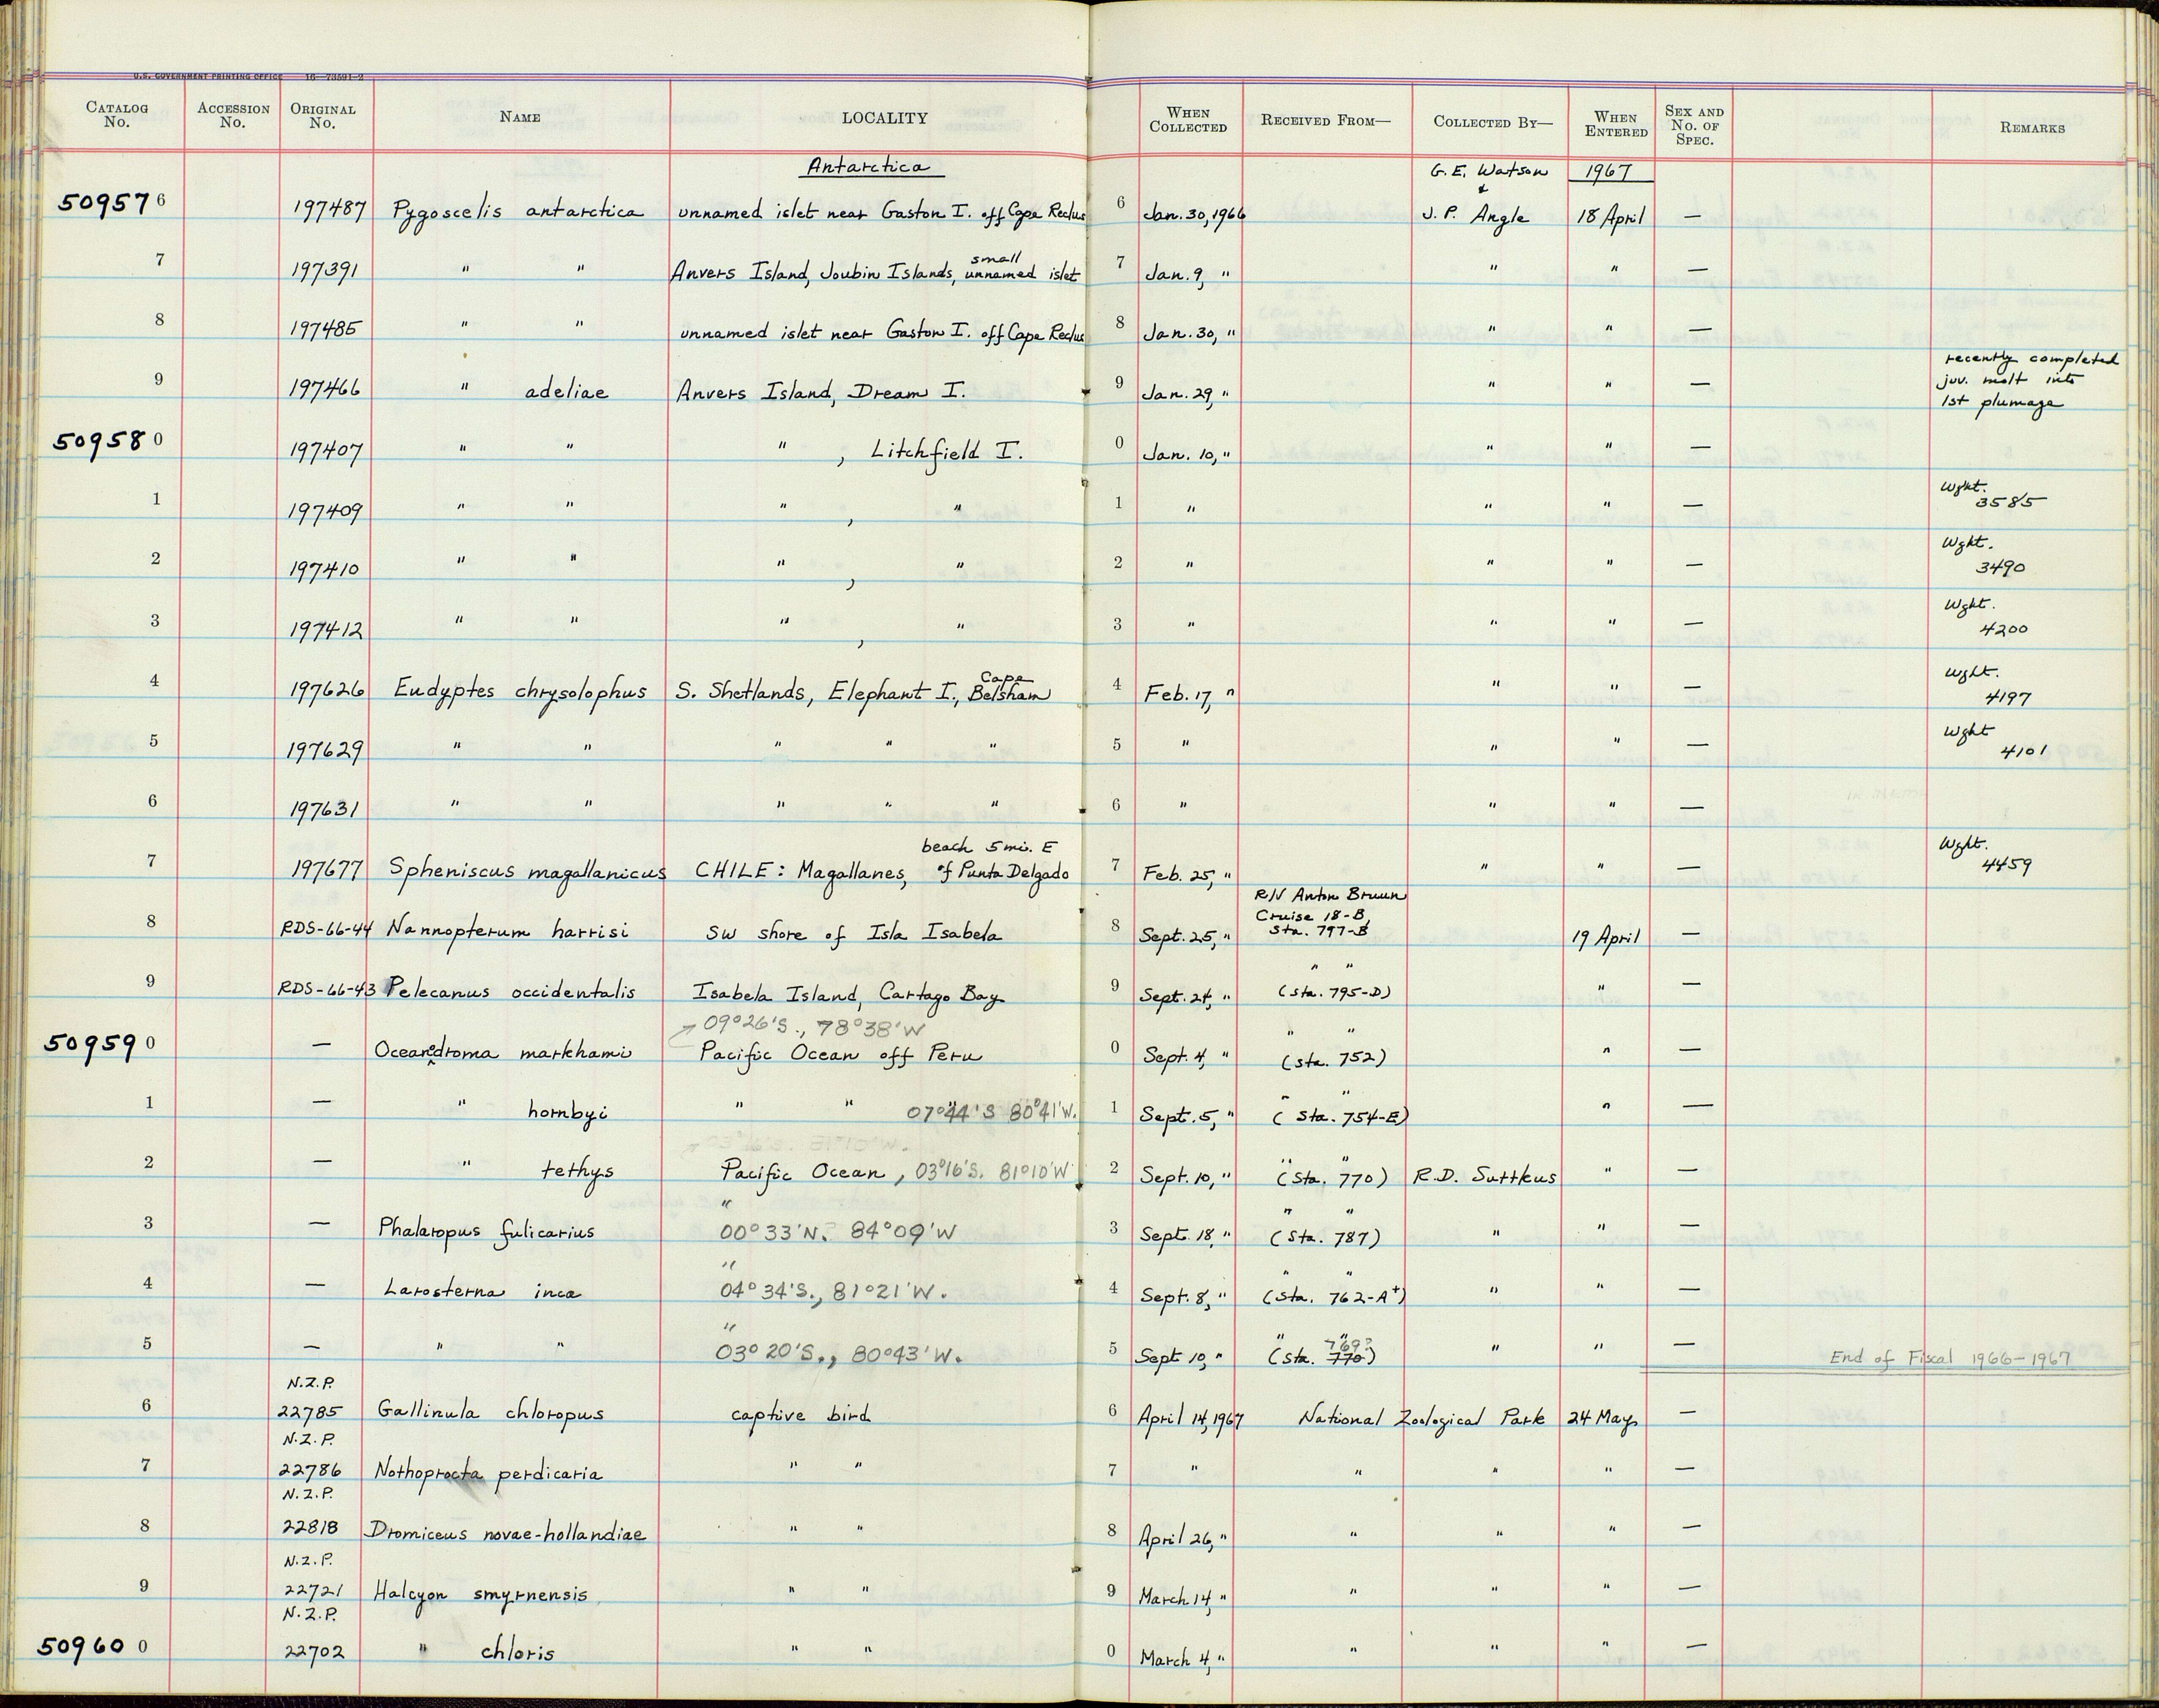 U.S. GOVERNMENT PRINTING OFFICE 16—73591-2
CATALOG No. ACCESSION No. ORIGINAL No. NAME LOCALITY WHEN COLLECTED RECEIVED FROM— COLLECTED BY— WHEN ENTERED SEX AND No. OF SPEC. REMARKS
Antarctica G. E. Watson 1967
&
50957 6 197487 Pygoscelis antarctica unnamed islet near Gaston I. off Cape Reclus 6 Jan. 30, 1966 J. P. Angle 18 April —
small
7 197391 " " Anvers Island, Joubin Islands, unnamed islet 7 Jan. 9, " " " —
8 197485 " " unnamed islet near Gaston I. off Cape Reclus 8 Jan. 30, " " " —
9 197466 " adeliae Anvers Island, Dream I. 9 Jan. 29, " " " — recently completed
juv. molt into
1st plumage
50958 0 197407 " " " , Litchfield I. 0 Jan. 10, " " " —
1 197409 " " " , " 1 " " " — Wght.
3585
2 197410 " " " , " 2 " " " — Wght.
3490
3 197412 " " " , " 3 " " " — Wght.
4200
Cape
4 197626 Eudyptes chrysolophus S. Shetlands, Elephant I., Belsham 4 Feb. 17, " " " — Wght.
4197
5 197629 " " " " " 5 " " " — Wght
4101
6 197631 " " " " " 6 " " " —
beach 5 mi. E
7 197677 Spheniscus magallanicus CHILE: Magallanes, of Punta Delgado 7 Feb. 25, " " " — Wght.
4459
R/V Anton Bruun
Cruise 18-B,
8 RDS-66-44 Nannopterum harrisi SW shore of Isla Isabela 8 Sept. 25, " Sta. 797-B 19 April —
" "
9 RDS-66-43 Pelecanus occidentalis Isabela Island, Cartago Bay 9 Sept. 24, " (Sta. 795-D) " —
09°26'S., 78°38'W " "
50959 0 — Oceanodroma markhami Pacific Ocean off Peru 0 Sept. 4, " (Sta. 752) " —
" "
1 — " hornbyi " " 07°44'S 80°41'W. 1 Sept. 5, " (Sta. 754-E) " —
" "
2 — " tethys Pacific Ocean, 03°16'S. 81°10'W 2 Sept. 10, " (Sta. 770) R.D. Suttkus " —
" " "
3 — Phalaropus fulicarius 00°33'N. 84°09'W 3 Sept. 18, " (Sta. 787) " " —
" " "
4 — Larosterna inca 04°34'S., 81°21'W. 4 Sept. 8, " (Sta. 762-A+) " " —
" " "
769?
5 — " " 03°20'S., 80°43'W. 5 Sept 10, " (Sta. 770) " " — End of Fiscal 1966-1967
N.Z.P.
6 22785 Gallinula chloropus captive bird 6 April 14, 1967 National Zoological Park 24 May —
N.Z.P.
7 22786 Nothoprocta perdicaria " " 7 " " " " —
N.Z.P.
8 22818 Dromiceus novae-hollandiae " " 8 April 26, " " " " —
N.Z.P.
9 22721 Halcyon smyrnensis " " 9 March 14, " " " " —
N.Z.P.
50960 0 22702 " chloris " " 0 March 4, " " " " —